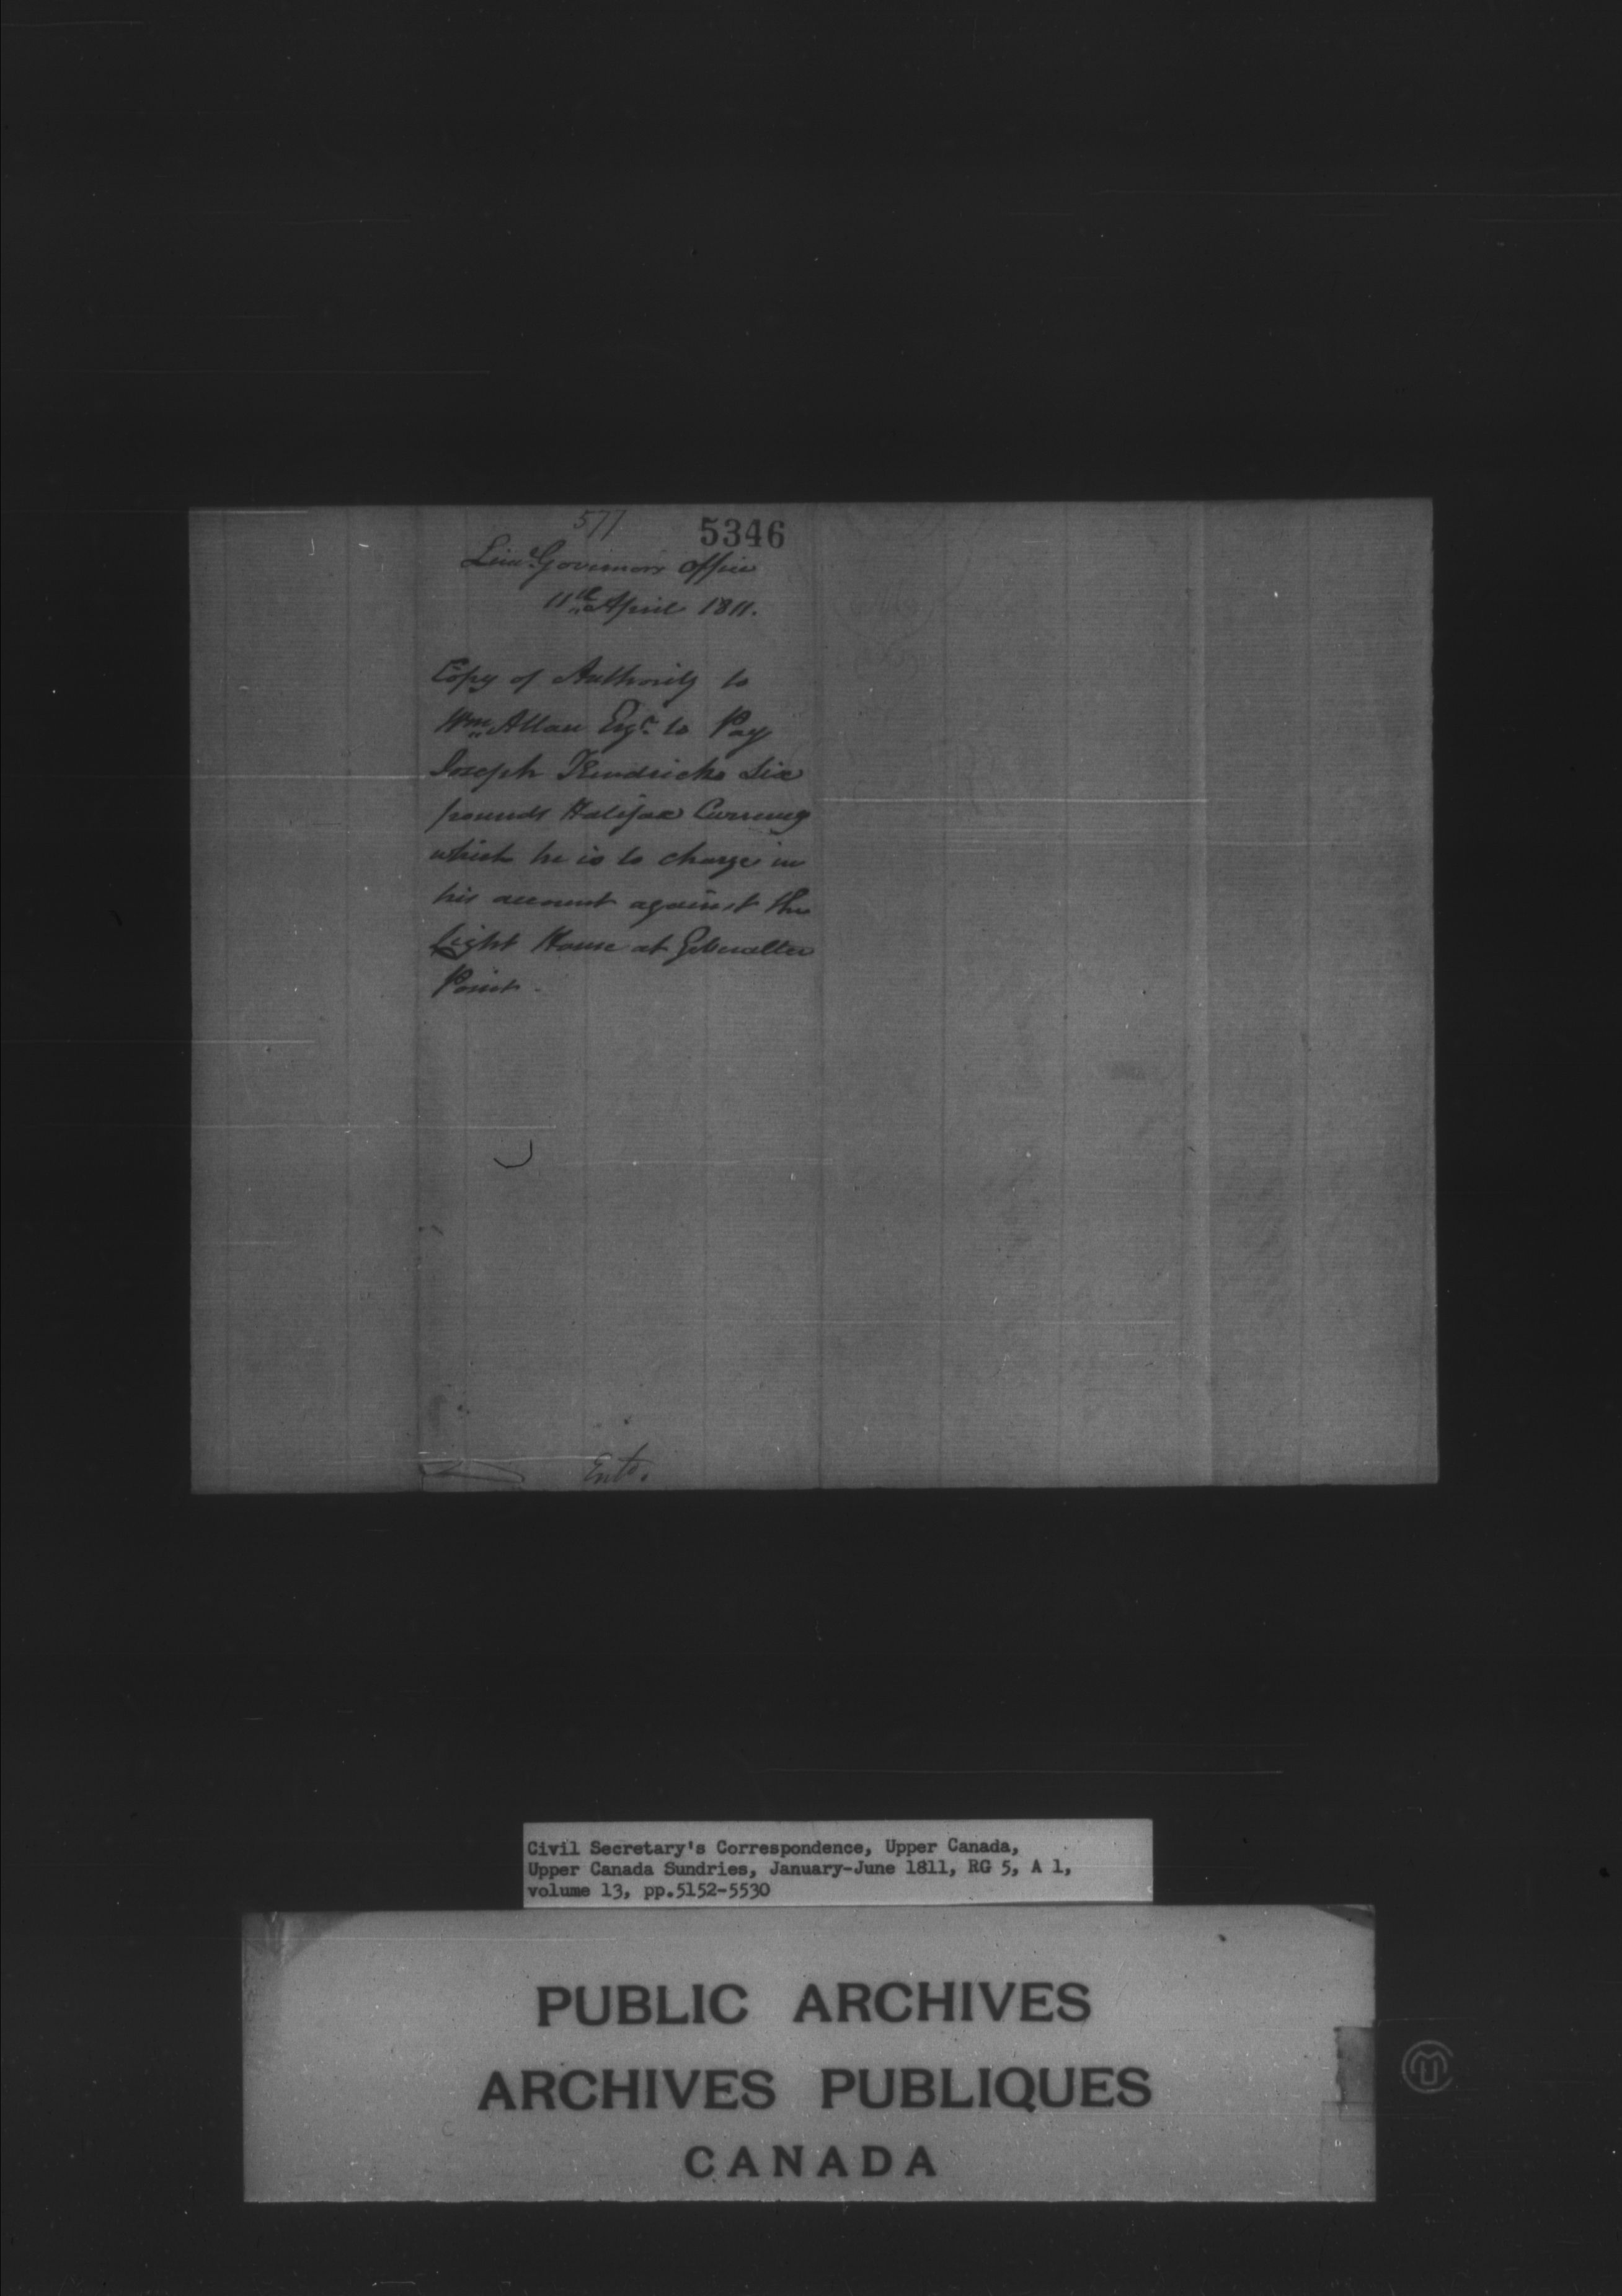 577
5346
Lieut Governors Office
11th April 1811.
Copy of Authority to
Wm Allan Esqr. to Pay
Joseph Kendricks Six
pounds Halifax Currency
which he is to charge in
his account against the
Light House at Gibralter
Point -
Entd.
Civil Secretary's Correspondence, Upper Canada,
Upper Canada Sundries, January-June 1811, RG 5, A 1,
volume 13, pp.5152-5530
PUBLIC ARCHIVES
ARCHIVES PUBLIQUES
CANADA